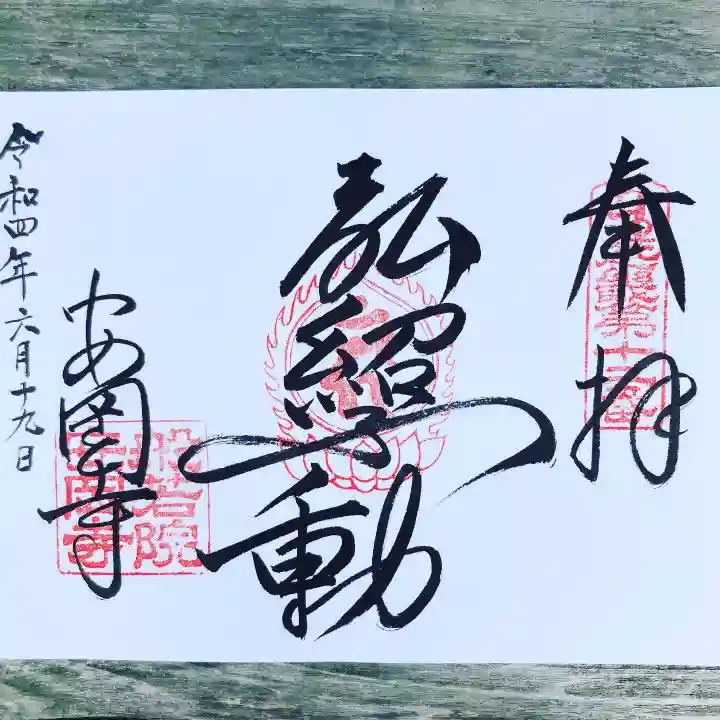 奉拝
弘紹不動
安国寺
般若院
安国寺
令和四年六月十九日